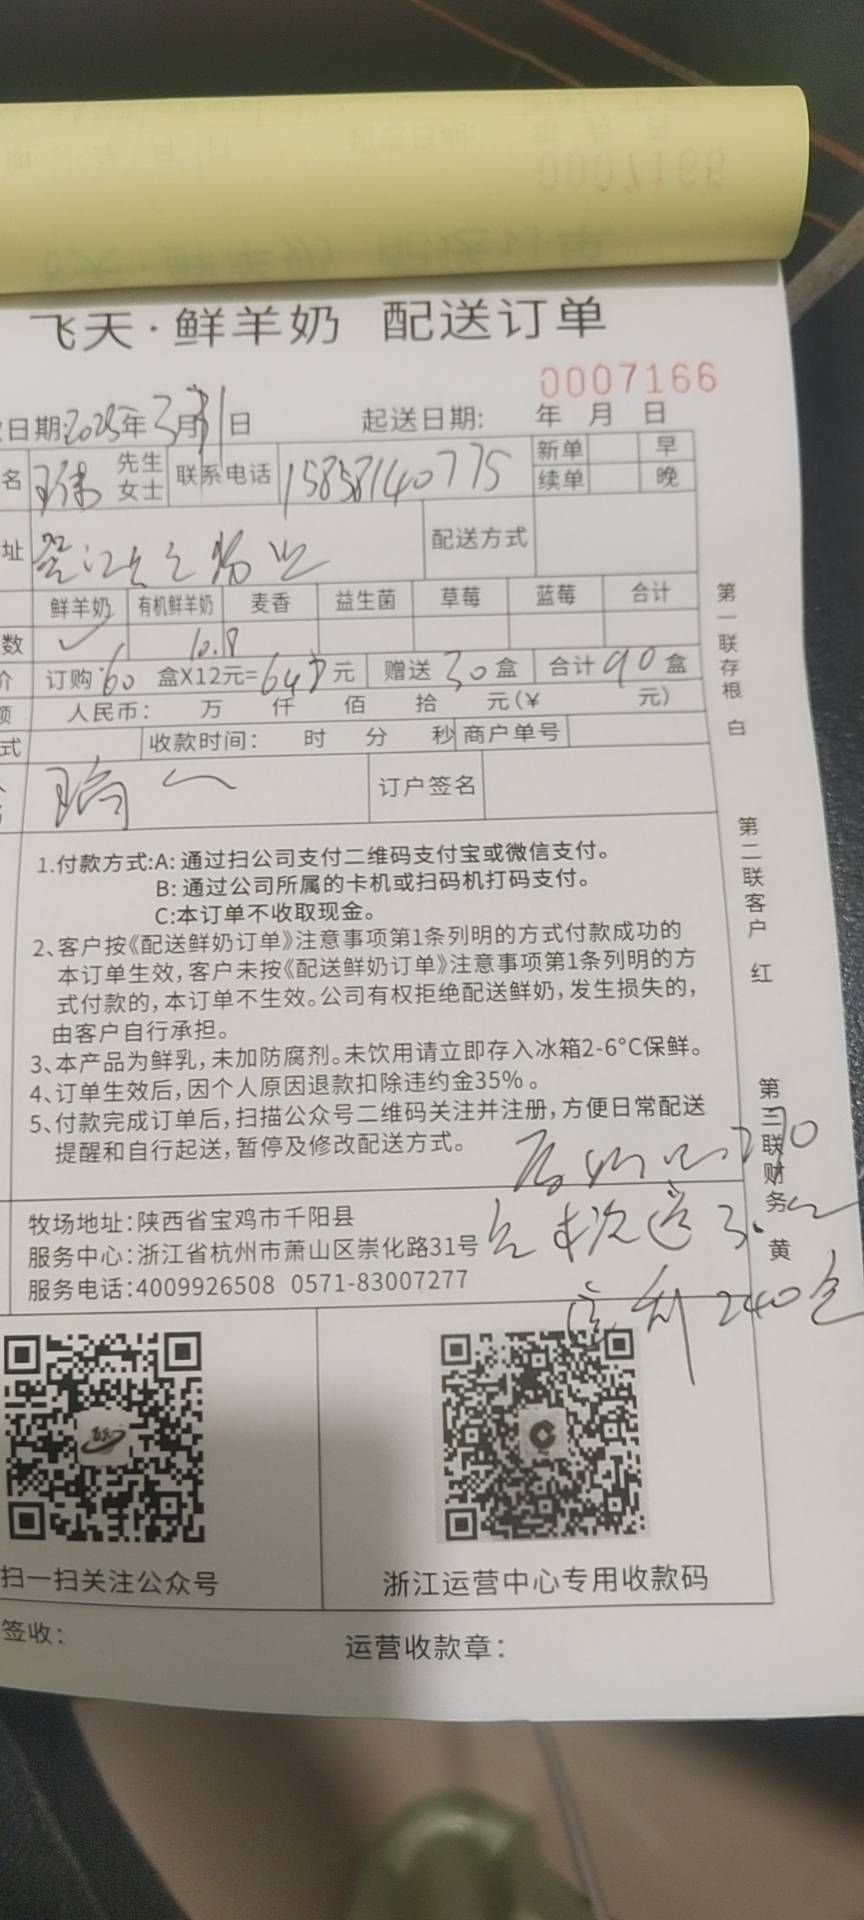 飞天·鲜羊奶 配送订单
0007166
日期:2025年3月31日 起送日期: 年 月 日
名 先生 女士 联系电话 15858140775 新单 早
续单 晚
址 配送方式
鲜羊奶 有机鲜羊奶 麦香 益生菌 草莓 蓝莓 合计
数 ✓ 10.8
价 订购 60 盒X12元=648元 赠送 30盒 合计 90盒
额 人民币: 万 仟 佰 拾 元(¥ 元)
式 收款时间: 时 分 秒 商户单号
订户签名
1.付款方式:A:通过扫公司支付二维码支付宝或微信支付。
B:通过公司所属的卡机或扫码机打码支付。
C:本订单不收取现金。
2、客户按《配送鲜奶订单》注意事项第1条列明的方式付款成功的
本订单生效,客户未按《配送鲜奶订单》注意事项第1条列明的方
式付款的,本订单不生效。公司有权拒绝配送鲜奶,发生损失的,
由客户自行承担。
3、本产品为鲜乳,未加防腐剂。未饮用请立即存入冰箱2-6°C保鲜。
4、订单生效后,因个人原因退款扣除违约金35%。
5、付款完成订单后,扫描公众号二维码关注并注册,方便日常配送
提醒和自行起送,暂停及修改配送方式。
牧场地址:陕西省宝鸡市千阳县
服务中心:浙江省杭州市萧山区崇化路31号
服务电话:4009926508 0571-83007277
本次送30
240包
扫一扫关注公众号
浙江运营中心专用收款码
签收:
运营收款章:
第一联存根 白
第二联客户 红
第三联财务 黄